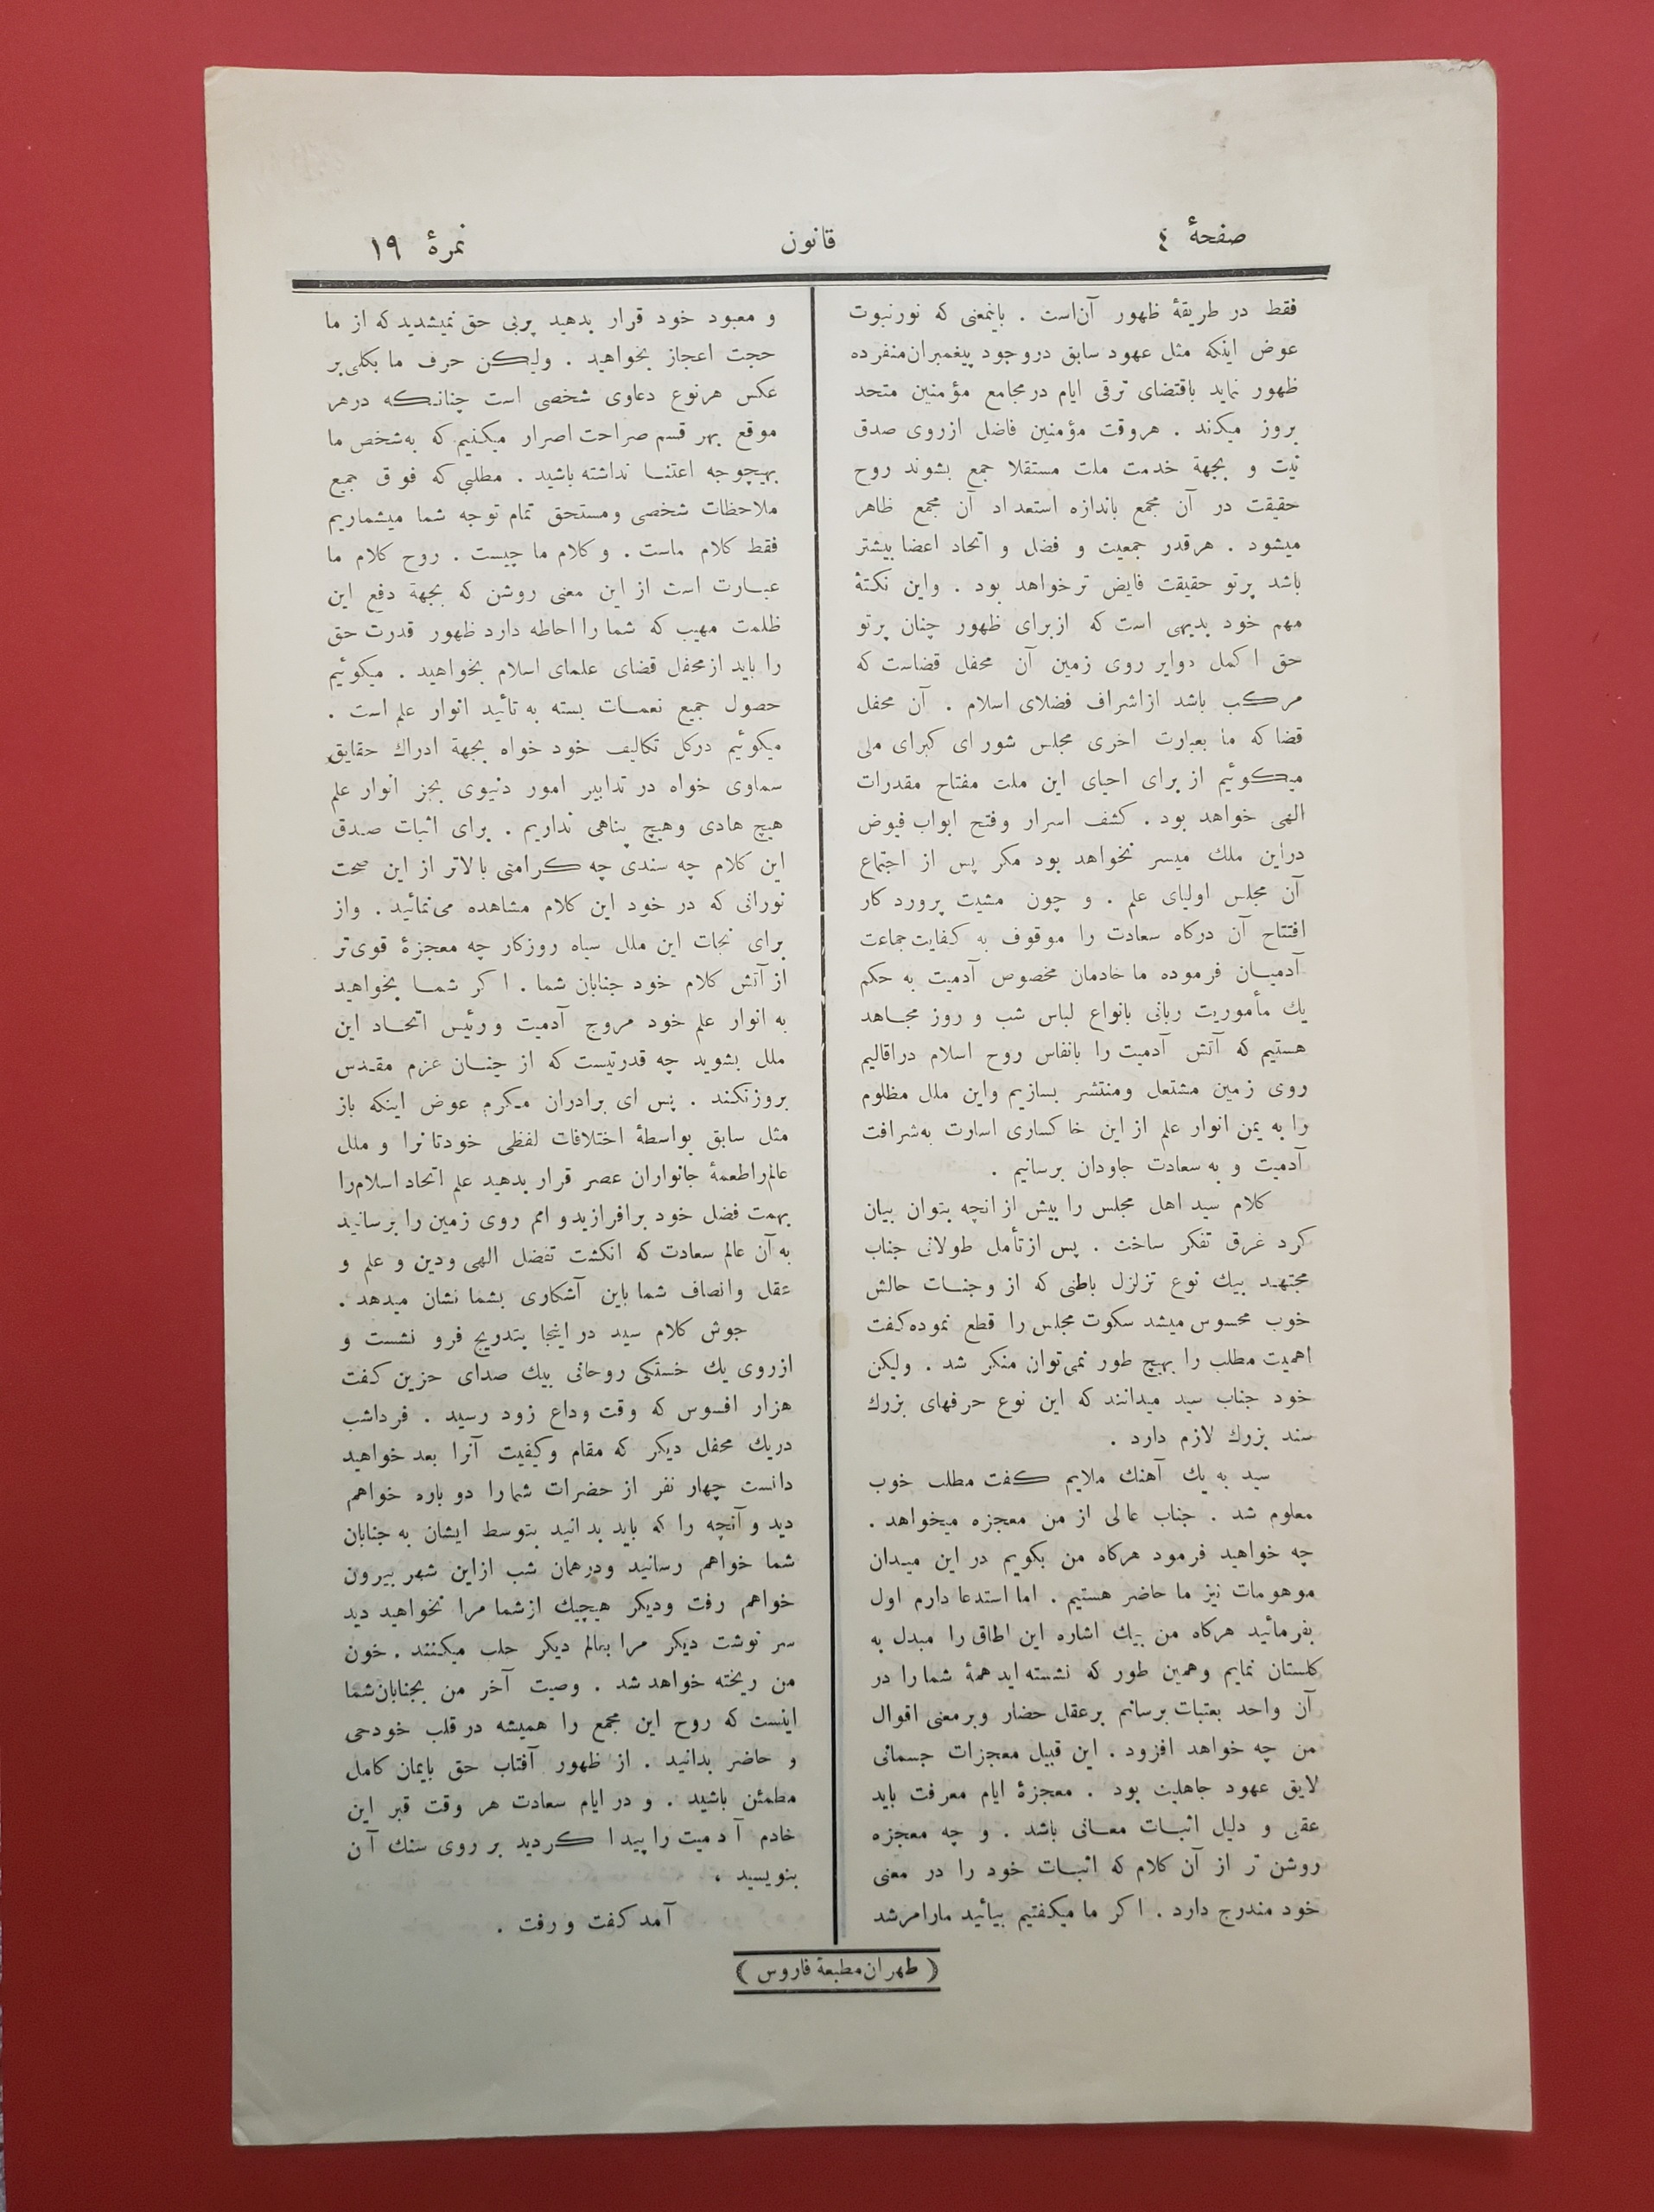 صفحهٔ ٤
قانون
نمرهٔ ١٩
فقط در طریقهٔ ظهور آن‌است . باینمعنی که نورنبوت
عوض اینکه مثل عهود سابق دروجود پیغمبران‌منفرده
ظهور نماید باقتضای ترقی ایام درمجامع مؤمنین متحد
بروز میکند . هروقت مؤمنین فاضل ازروی صدق
نیت و بجهة خدمت ملت مستقلا جمع بشوند روح
حقیقت در آن مجمع باندازه استعداد آن مجمع ظاهر
میشود . هرقدر جمعیت و فضل و اتحاد اعضا بیشتر
باشد پرتو حقیقت فایض ترخواهد بود . واین نکتهٔ
مهم خود بدیهی است که ازبرای ظهور چنان پرتو
حق اکمل دوایر روی زمین آن محفل قضاست که
مرکب باشد ازاشراف فضلای اسلام . آن محفل
قضا که ما بعبارت اخری مجلس شورای کبرای ملی
میکوئیم از برای احیای این ملت مفتاح مقدرات
الهی خواهد بود . کشف اسرار وفتح ابواب فیوض
دراین ملك میسر نخواهد بود مکر پس از اجتماع
آن مجلس اولیای علم . و چون مشیت پرورد کار
افتتاح آن درکاه سعادت را موقوف به کفایت جماعت
آدمیان فرموده ما خادمان مخصوص آدمیت به حکم
یك مأموریت ربانی بانواع لباس شب و روز مجاهد
هستیم که آتش آدمیت را بانفاس روح اسلام دراقالیم
روی زمین مشتعل ومنتشر بسازیم واین ملل مظلوم
را به یمن انوار علم از این خاکساری اسارت به‌شرافت
آدمیت و به سعادت جاودان برسانیم .
کلام سید اهل مجلس را بیش از انچه بتوان بیان
کرد غرق تفکر ساخت . پس ازتأمل طولانی جناب
مجتهد بیك نوع تزلزل باطنی که از وجنات حالش
خوب محسوس میشد سکوت مجلس را قطع نموده‌کفت
اهمیت مطلب را بهیچ طور نمی‌توان منکر شد . ولیکن
خود جناب سید میدانند که این نوع حرفهای بزرك
سند بزرك لازم دارد .
سید به یك آهنك ملایم کفت مطلب خوب
معلوم شد . جناب عالی از من معجزه میخواهد .
چه خواهید فرمود هرکاه من بکویم در این میدان
موهومات نیز ما حاضر هستیم . اما استدعا دارم اول
بفرمائید هرکاه من بیك اشاره این اطاق را مبدل به
کلستان نمایم وهمین طور که نشسته اید همهٔ شمارا در
آن واحد بعتبات برسانم برعقل حضار وبرمعنی اقوال
من چه خواهد افزود . این قبیل معجزات جسمانی
لایق عهود جاهلیت بود . معجزهٔ ایام معرفت باید
عقلی و دلیل اثبات معانی باشد . و چه معجزه
روشن تر از آن کلام که اثبات خود را در معنی
خود مندرج دارد . اکر ما میکفتیم بیائید مارامرشد
و معبود خود قرار بدهید پربی حق نمیشدید که از ما
حجت اعجاز بخواهید . ولیکن حرف ما بکلی‌بر
عکس هرنوع دعاوی شخصی است چنانکه درهر
موقع بهر قسم صراحت اصرار میکنیم که به‌شخص ما
بهیچوجه اعتنا نداشته باشید . مطلبی که فوق جمیع
ملاحظات شخصی ومستحق تمام توجه شما میشماریم
فقط کلام ماست . وکلام ما چیست . روح کلام ما
عبارت است از این معنی روشن که بجهة دفع این
ظلمت مهیب که شما را احاطه دارد ظهور قدرت حق
را باید ازمحفل قضای علمای اسلام بخواهید . میکوئیم
حصول جمیع نعمات بسته به تأئید انوار علم است .
میکوئیم درکل تکالیف خود خواه بجهة ادراك حقایق
سماوی خواه در تدابیر امور دنیوی بجز انوار علم
هیچ هادی وهیچ پناهی نداریم . برای اثبات صدق
این کلام چه سندی چه کرامتی بالاتر از این صحت
نورانی که در خود این کلام مشاهده می‌نمائید . واز
برای نجات این ملل سیاه روزکار چه معجزهٔ قوی‌تر
از آتش کلام خود جنابان شما . اکر شما بخواهید
به انوار علم خود مروج آدمیت ورئیس اتحاد این
ملل بشوید چه قدرتیست که از چنان عزم مقدس
بروزنکند . پس ای برادران مکرم عوض اینکه باز
مثل سابق بواسطهٔ اختلافات لفظی خودتانرا و ملل
عالم‌راطعمهٔ جانواران عصر قرار بدهید علم اتحاد اسلام‌را
بهمت فضل خود برافرازیدو امم روی زمین را برسانید
به آن عالم سعادت که انکشت تفضل الهی ودین و علم و
عقل وانصاف شما باین آشکاری بشما نشان میدهد .
جوش کلام سید در اینجا بتدریج فرو نشست و
ازروی یك خستکی روحانی بیك صدای حزین کفت
هزار افسوس که وقت وداع زود رسید . فرداشب
دریك محفل دیکر که مقام وکیفیت آنرا بعد خواهید
دانست چهار نفر از حضرات شمارا دو باره خواهم
دید وآنچه را که باید بدانید بتوسط ایشان به جنابان
شما خواهم رسانید ودرهمان شب ازاین شهر بیرون
خواهم رفت ودیکر هیچیك ازشما مرا نخواهید دید
سر نوشت دیکر مرا بعالم دیکر جلب میکنند . خون
من ریخته خواهد شد . وصیت آخر من بجنابان‌شما
اینست که روح این مجمع را همیشه در قلب خودحی
و حاضر بدانید . از ظهور آفتاب حق بایمان کامل
مطمئن باشید . و در ایام سعادت هر وقت قبر این
خادم آدمیت را پیدا کردید بر روی سنك آن
بنویسید .
آمد کفت و رفت .
( طهران مطبعة فاروس )